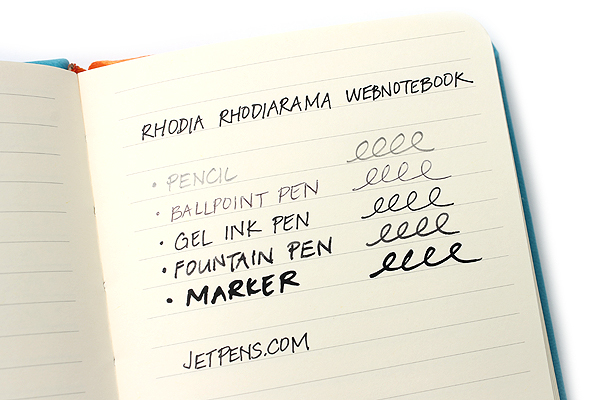 RHODIA RHODIARAMA WEBNOTEBOOK
• PENCIL
• BALLPOINT PEN
• GEL INK PEN
• FOUNTAIN PEN
• MARKER
JETPENS.COM